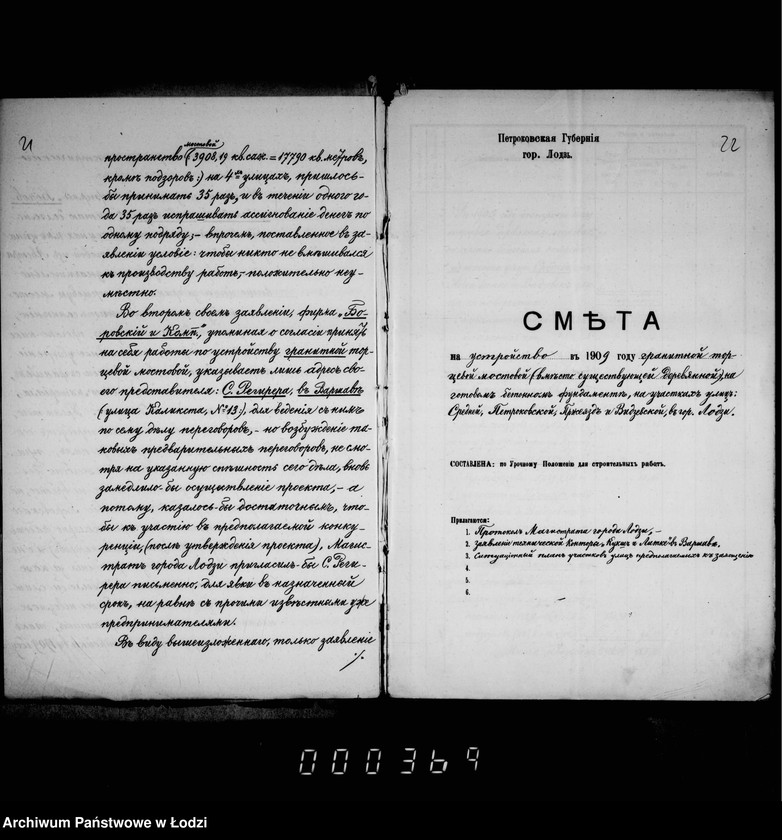 21
мостовой
пространство (3908,19 кв. саж. = 17790 кв. метров,
кромѣ подзоров:) на 4-хъ улицахъ, пришлось-
бы принимать 35 разъ, и въ теченіи одного го-
да 35 разъ испрашивать ассигнованіе денегъ по
одному подряду; – впрочемъ, поставленное въ за-
явленіи условіе: чтобы никто не вмѣшивался
къ производству работъ, – положительно неу-
мѣстно.
Во второмъ своемъ заявленіи, фирма „Бо-
ровскій и Комп.", упоминая о согласіи принять
на себя работы по устройству гранитной тор-
цевой мостовой, указываетъ лишь адресъ сво-
его представителя: С. Регирера, въ Варшавѣ
(улица Каликста, № 13:), для веденія съ нимъ
по сему дѣлу переговоровъ, – но возбужденіе та-
ковыхъ предварительныхъ переговоровъ, не смо-
тря на указанную спѣшность сего дѣла, вновь
замедлило-бы осуществленіе проекта, – а
потому, казалось-бы достаточнымъ, что-
бы къ участію въ предполагаемой конку-
ренціи, (послѣ утвержденія проекта), Магис-
тратъ города Лодзи пригласилъ-бы С. Реги-
рера письменно, для явки въ назначенный
срокъ, на равнѣ съ прочими извѣстными уже
предпринимателями.
Въ виду вышеизложеннаго, только заявленіе
./.
22
Петроковская Губернія
гор. Лодзь.
СМѢТА
на устройство въ 1909 году гранитной тор-
цевой мостовой (вмѣсто существующей деревянной), на
готовомъ бетонномъ фундаментѣ, на участкахъ улицъ:
Средней, Петроковской, Пржеяздъ и Видзевской, въ гор. Лодзи.
СОСТАВЛЕНА: по Урочному Положенію для строительныхъ работъ.
Прилагаются:
1. Протоколъ Магистрата города Лодзи, –
2. заявленіе технической Конторы, въ Варшавѣ,
3. Ситуаціонный планъ участковъ улицъ предполагаемыхъ къ замощенію
4.
5.
6.
000369
Archiwum Państwowe w Łodzi